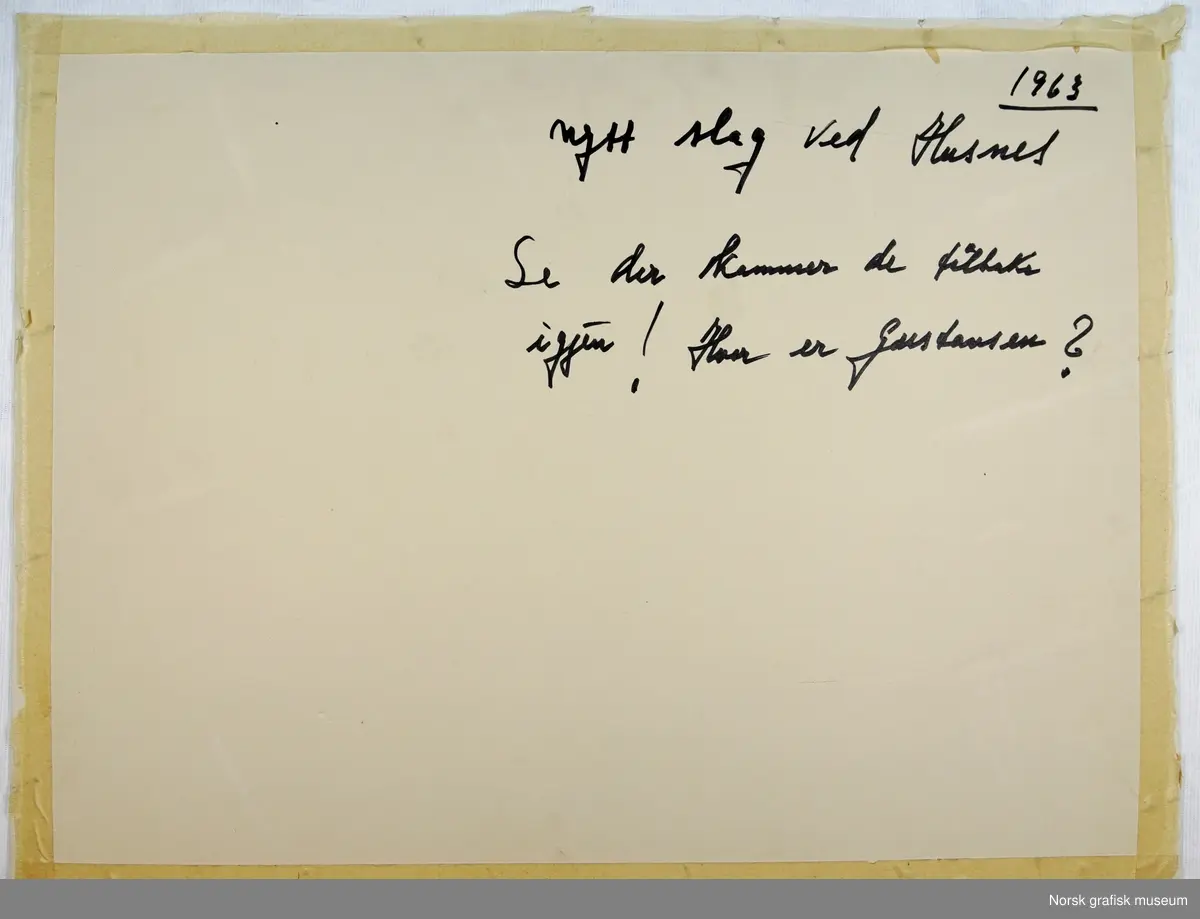 1963
nytt slag ved Husnes
Se der kommer de tilbake
igjen! Hvor er Gustavsen?
Norsk grafisk museum